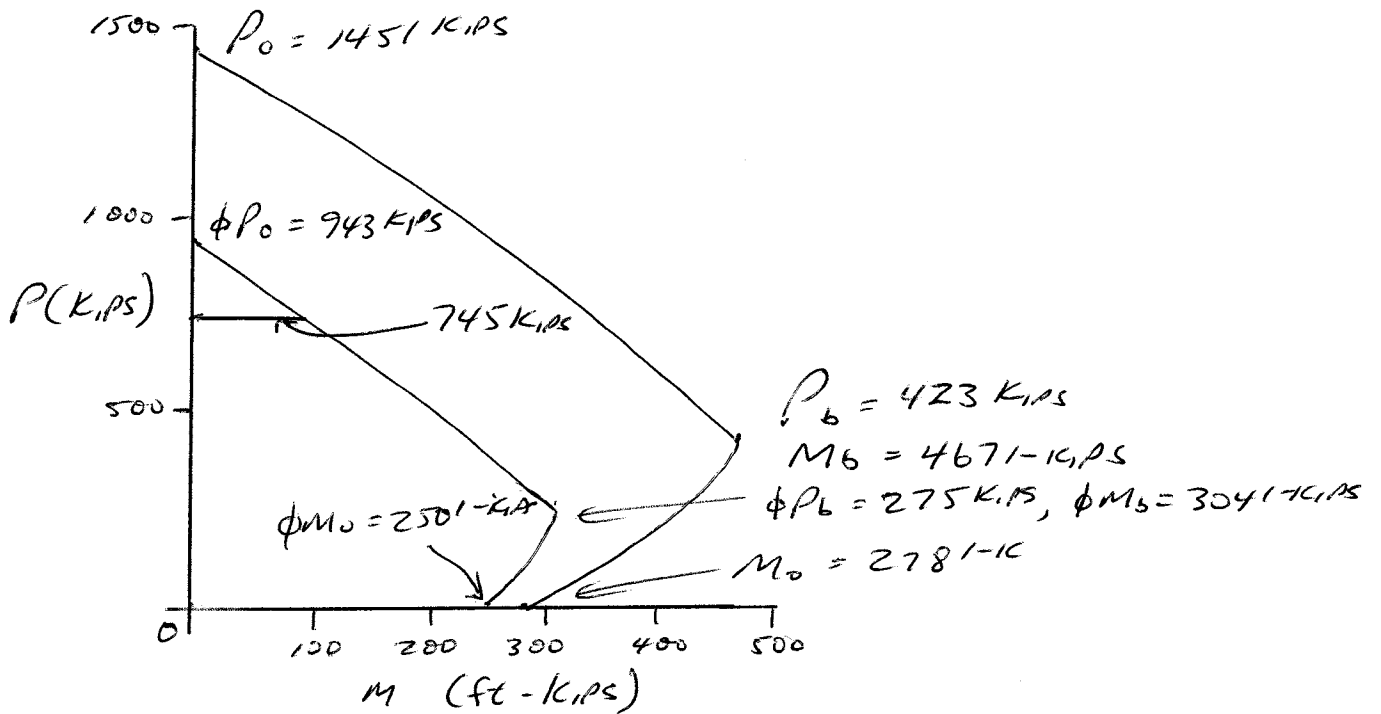 1500
P₀ = 1451 Kips
1000
ϕP₀ = 943 Kips
P(Kips)
745 Kips
500
P_b = 423 Kips
M_b = 467'-Kips
ϕP_b = 275 Kips, ϕM_b = 304'-Kips
ϕM₀ = 250'-Kips
M₀ = 278'-K
0
100 200 300 400 500
M (ft-Kips)